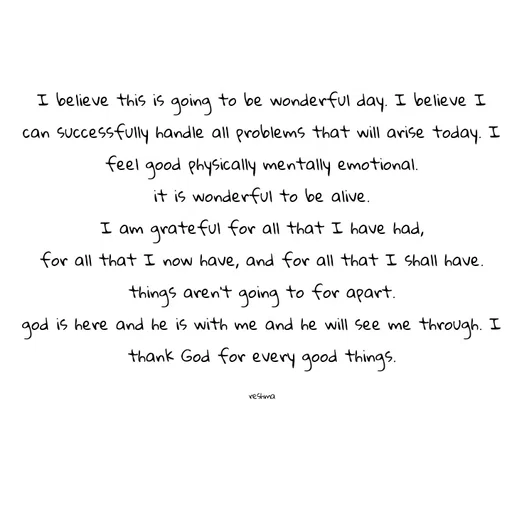 I believe this is going to be wonderful day. I believe I
can successfully handle all problems that will arise today. I
feel good physically mentally emotional.
it is wonderful to be alive.
I am grateful for all that I have had,
for all that I now have, and for all that I shall have.
things aren't going to for apart.
god is here and he is with me and he will see me through. I
thank God for every good things.
reshma